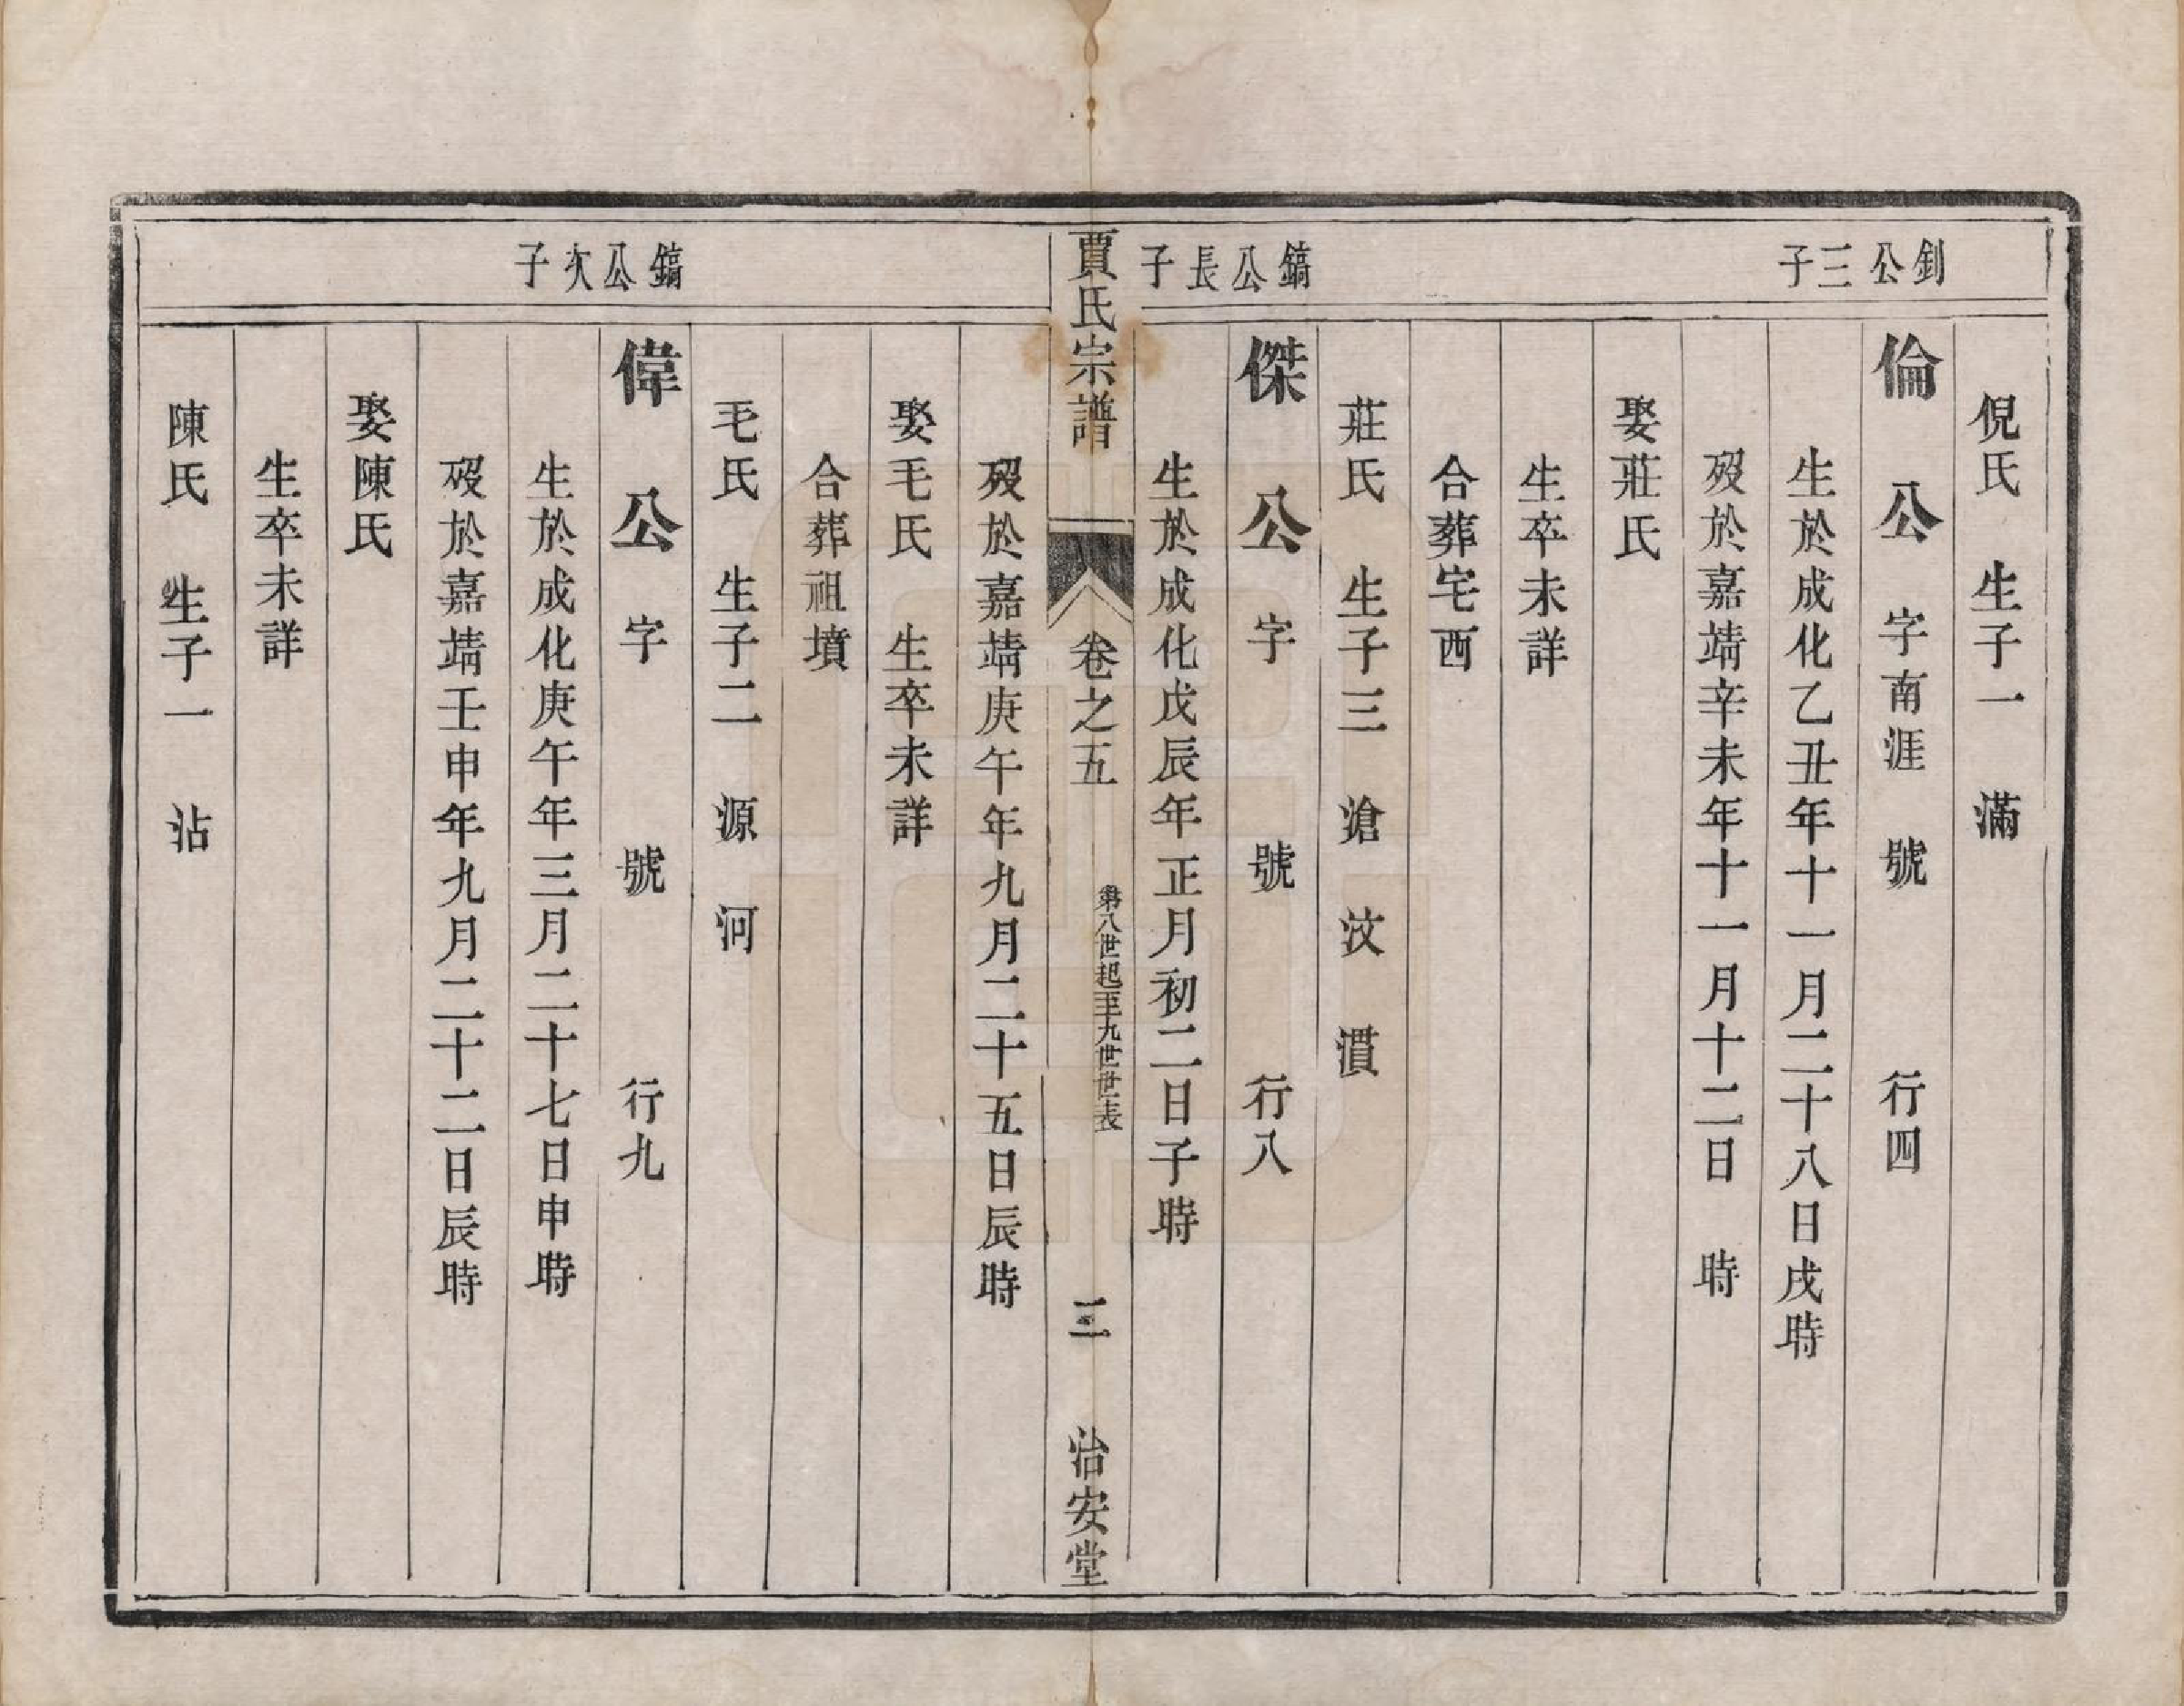 釗公三子
倪氏　生子一　滿
倫公　字南涯　號　行四
生於成化乙丑年十一月二十八日戌時
歿於嘉靖辛未年十一月十二日　時
娶莊氏
生卒未詳
合葬宅西
莊氏　生子三　滄　汶　濆
鎬公長子
傑公　字　號　行八
生於成化戊辰年正月初二日子時
賈氏宗譜　卷之五　第八世起至九世世表　三　治安堂
歿於嘉靖庚午年九月二十五日辰時
娶毛氏　生卒未詳
合葬祖墳
毛氏　生子二　源　河
鎬公次子
偉公　字　號　行九
生於成化庚午年三月二十七日申時
歿於嘉靖壬申年九月二十二日辰時
娶陳氏
生卒未詳
陳氏　生子一　沾